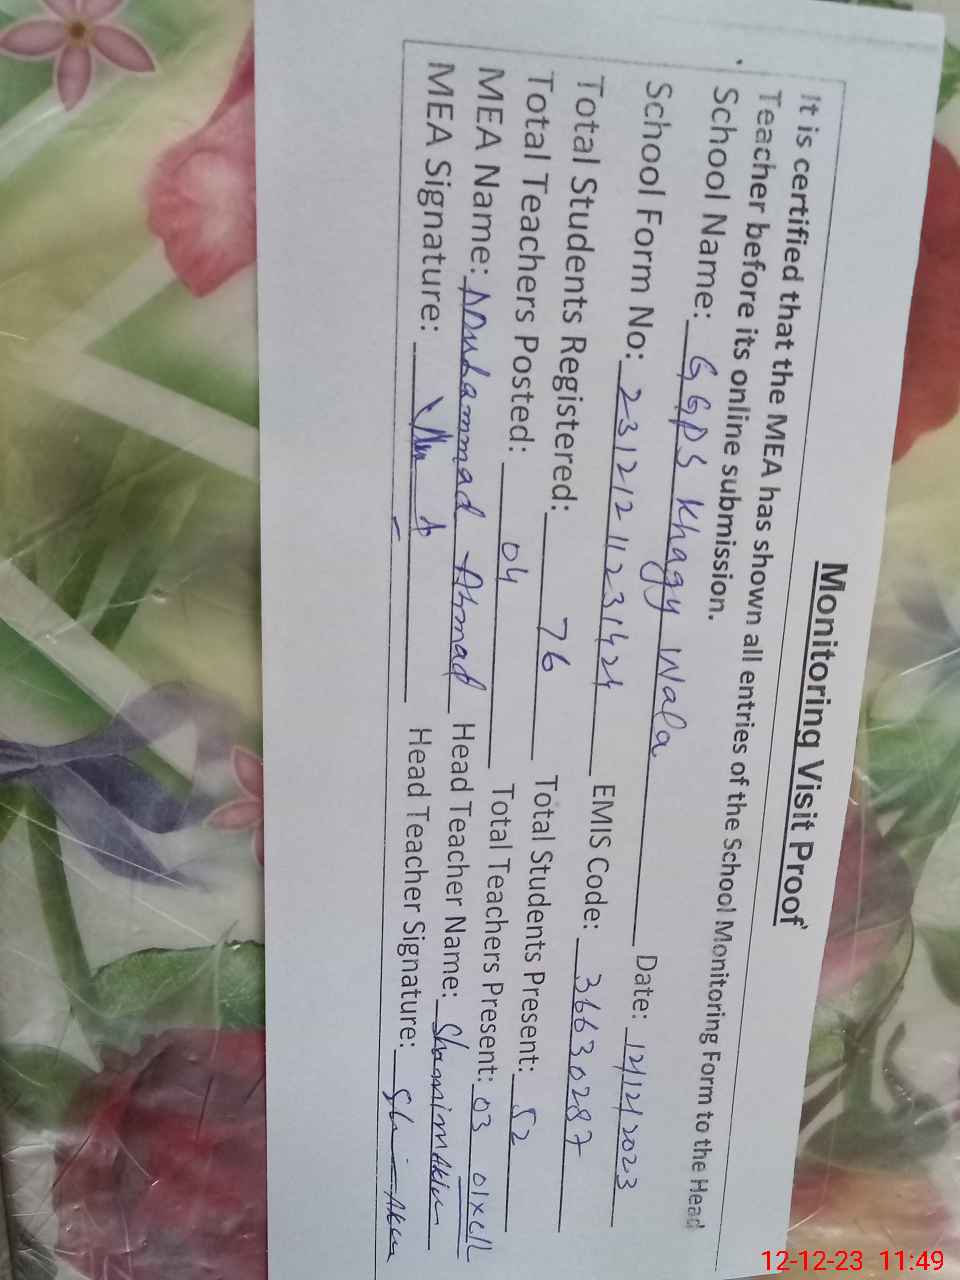 Monitoring Visit Proof
It is certified that the MEA has shown all entries of the School Monitoring Form to the Head
Teacher before its online submission.
School Name: GGPS Khagy Wala Date: 12/12/2023
School Form No: 23121211231424 EMIS Code: 36630287
Total Students Registered: 76 Total Students Present: 52
Total Teachers Posted: 04 Total Teachers Present: 03
MEA Name: Muhammad Ahmad Head Teacher Name: Shamim Akhtar
MEA Signature: Head Teacher Signature:
12-12-23 11:49